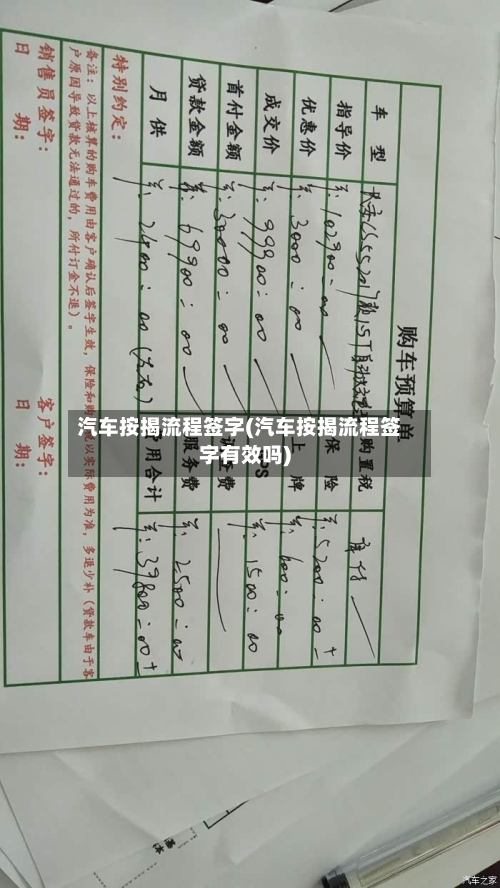 购车预算单
车型 长安CS55 2017款1.5T自动 购置税
指导价 ¥:102900=00 保险 ¥:5200=00+
优惠价 ¥:3000=00 上牌 ¥:600=00
成交价 ¥:99900=00 PS ¥:1500=00
首付金额 ¥:30000=00 费
贷款金额 ¥:69900=00 服务费 ¥:2500=00
月供 ¥:2400=00 费用合计 ¥:39800=00+
特别约定:
备注:以上核算的购车费用由客户确认后签字生效,保险和购以实际费用为准,多退少补(贷款车由于客
户原因导致贷款无法通过的,所付订金不退)。
销售员签字: 客户签字:
日 期: 日 期:
汽车按揭流程签字(汽车按揭流程签
字有效吗)
汽车之家